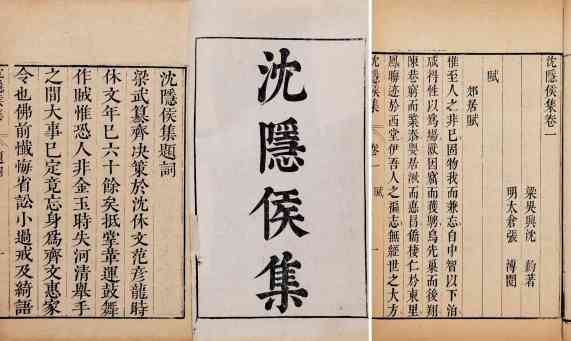 沈隱侯集題詞
梁武纂齊决策於沈休文范彦龍時
休文年已六十餘矣抵掌革運鼓舞
作賊惟恐人非金玉時失河清舉手
之間大事已定竟忘身爲齊文惠家
令也佛前懺悔省訟小過戒及綺語
沈隱侯集
沈隱侯集卷一
梁吳興沈約著
明太倉張溥閱
賦
郊居賦
惟至人之非已固物我而兼忘自中智以下
咸得性以爲場獸因窟而獲騁鳥先巢而後翔
陳巷窮而業泰嬰居湫而德昌僑棲仁於東里
鳳迹於西堂伊吾人之褊志無經世之大方
沈隱侯集 卷一 賦 一